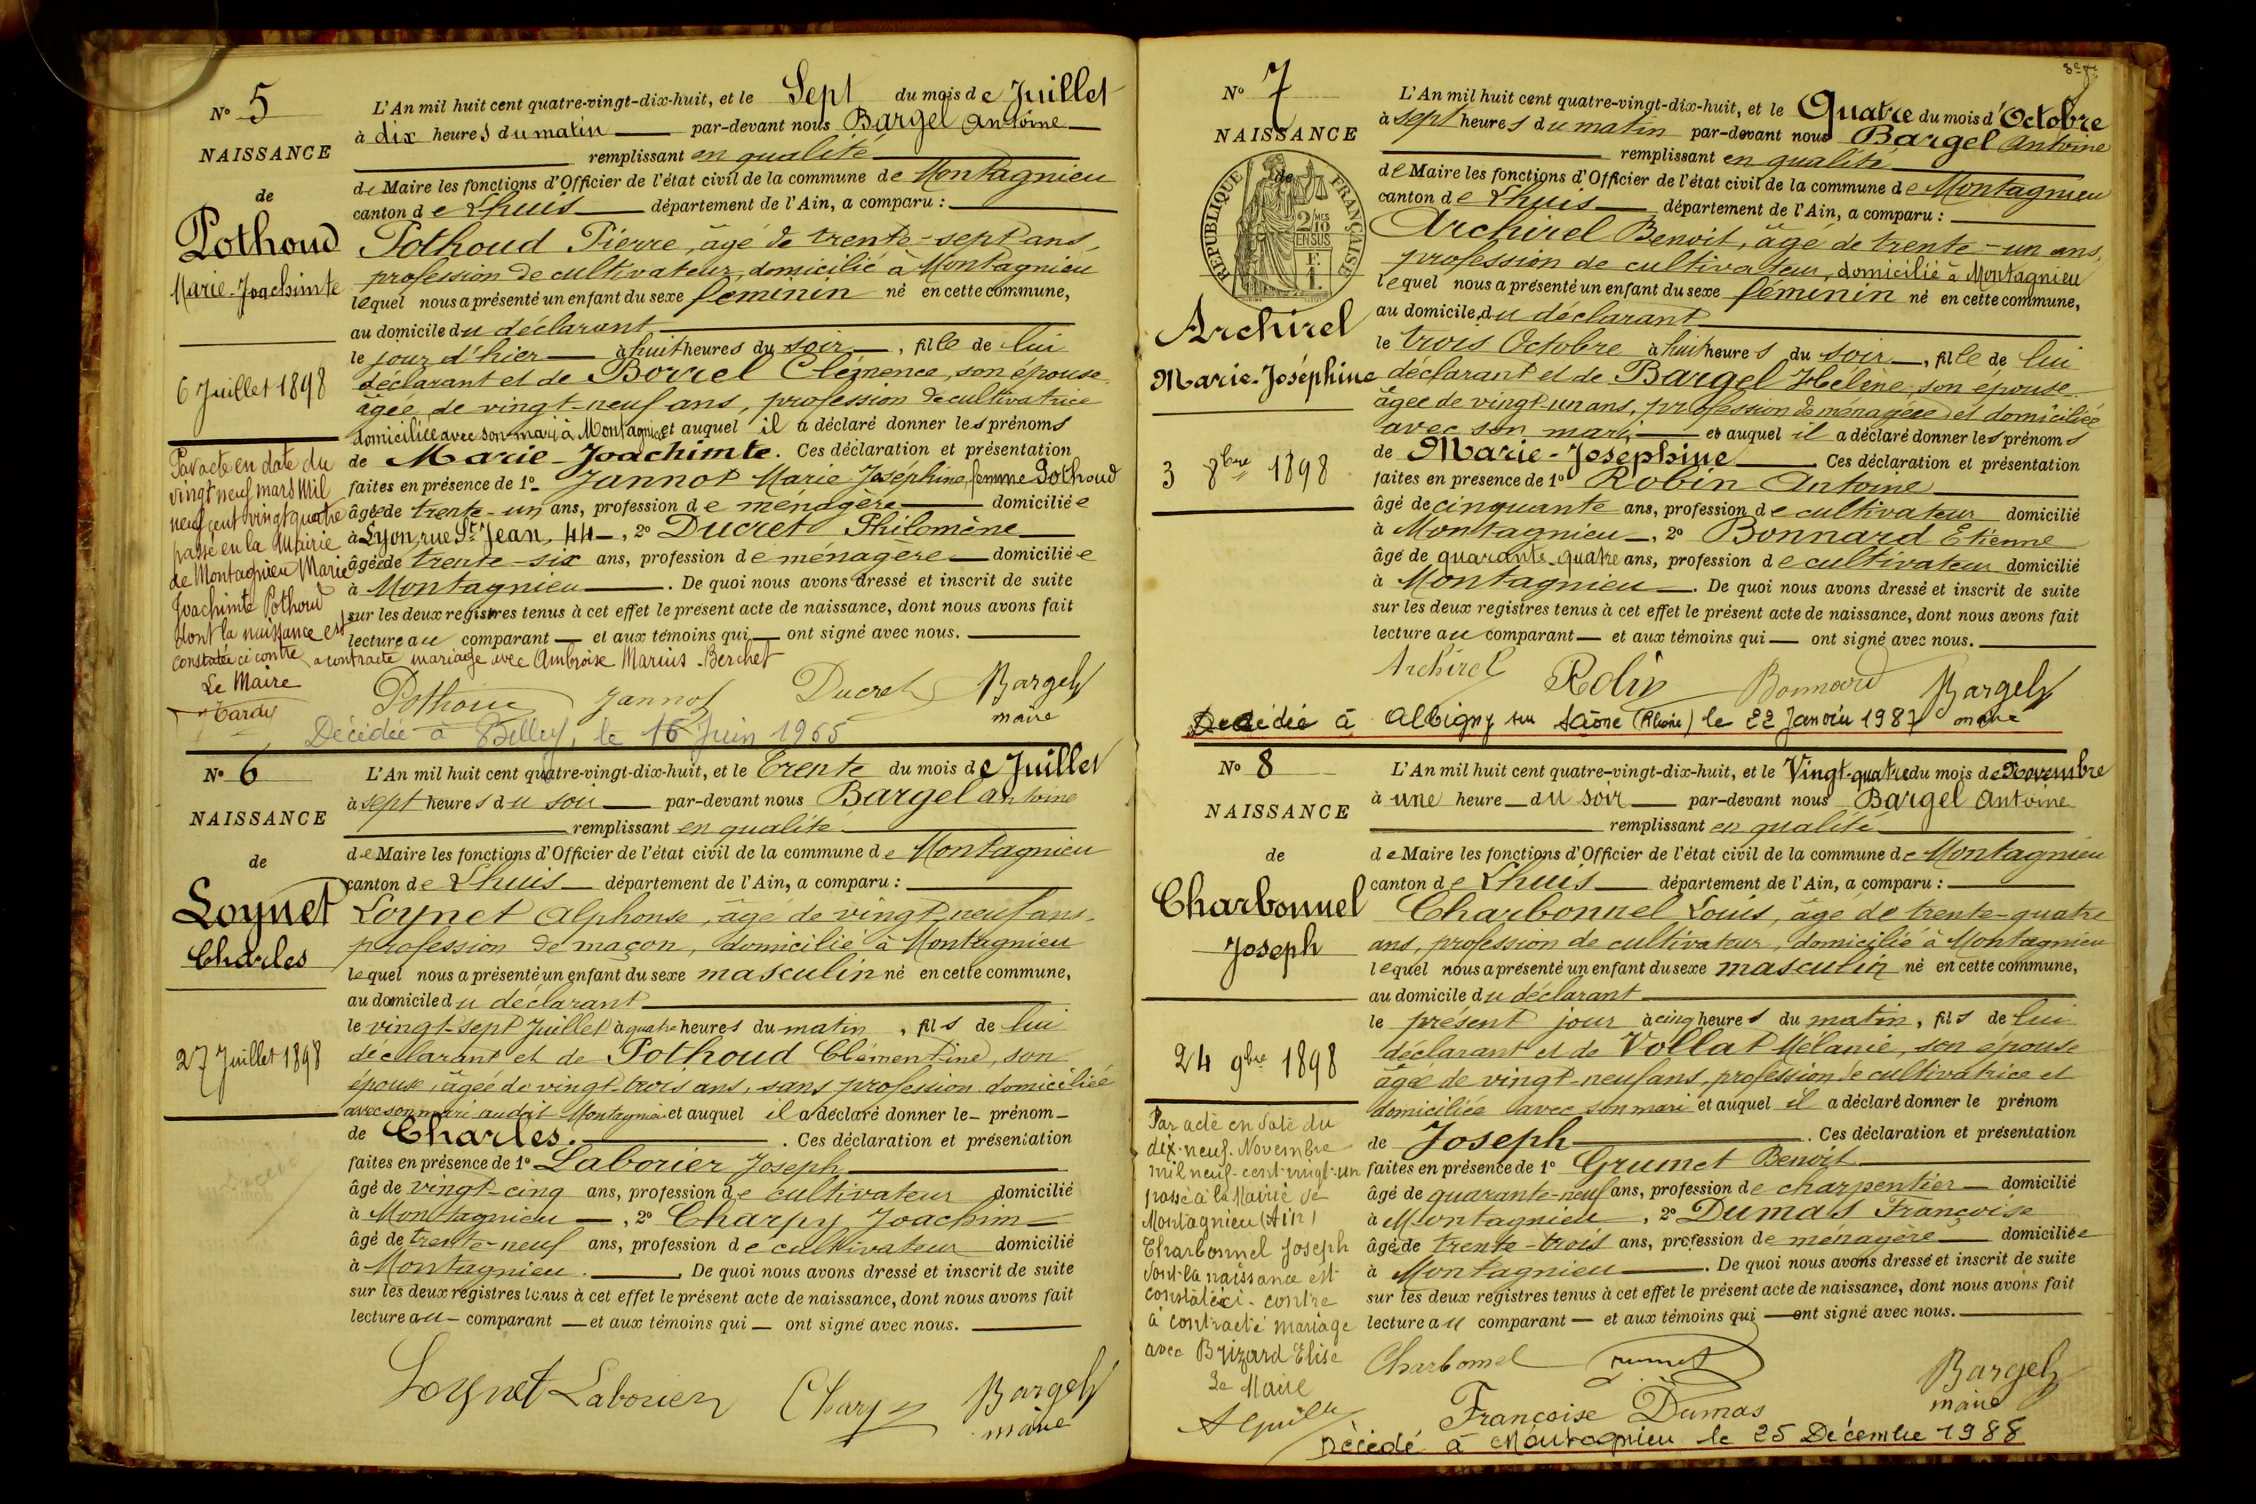 N° 5
NAISSANCE
de
Pothoud
Marie-Joachimte
6 Juillet 1898
Par acte en date du
vingt neuf mars mil
neuf cent vingt quatre
passé en la Mairie
de Montagnieu Marie
Joachimte Pothoud
dont la naissance est
constatée ci contre a contracté mariage avec Ambroise Marius Berchet
Le Maire
Tardy
L'An mil huit cent quatre-vingt-dix-huit, et le Sept du mois de Juillet
à dix heures du matin par-devant nous Bargel Antoine
remplissant en qualité
de Maire les fonctions d'Officier de l'état civil de la commune de Montagnieu
canton de Lhuis département de l'Ain, a comparu :
Pothoud Pierre, âgé de trente-sept ans,
profession de cultivateur, domicilié à Montagnieu
lequel nous a présenté un enfant du sexe féminin né en cette commune,
au domicile du déclarant
le jour d'hier à huit heures du soir, fille de lui
déclarant et de Borrel Clémence, son épouse
âgée de vingt-neuf ans, profession de cultivatrice
domiciliée avec son mari à Montagnieu et auquel il a déclaré donner les prénoms
de Marie-Joachimte. Ces déclaration et présentation
faites en présence de 1° Jannot Marie Joséphine, femme Pothoud
âgée de trente-un ans, profession de ménagère domiciliée
à Lyon, rue St Jean, 44, 2° Ducret Philomène
âgée de trente-six ans, profession de ménagère domiciliée
à Montagnieu. De quoi nous avons dressé et inscrit de suite
sur les deux registres tenus à cet effet le présent acte de naissance, dont nous avons fait
lecture au comparant et aux témoins qui ont signé avec nous.
Pothoud Jannot Ducret Bargel
maire
Décédée à Belley, le 16 Juin 1965
N° 6
NAISSANCE
de
Loynet
Charles
27 Juillet 1898
L'An mil huit cent quatre-vingt-dix-huit, et le Trente du mois de Juillet
à sept heures du soir par-devant nous Bargel Antoine
remplissant en qualité
de Maire les fonctions d'Officier de l'état civil de la commune de Montagnieu
canton de Lhuis département de l'Ain, a comparu :
Loynet Alphonse, âgé de vingt-neuf ans,
profession de maçon, domicilié à Montagnieu
lequel nous a présenté un enfant du sexe masculin né en cette commune,
au domicile du déclarant
le vingt-sept Juillet à quatre heures du matin, fils de lui
déclarant et de Pothoud Clémentine, son
épouse, âgée de vingt-trois ans, sans profession domiciliée
avec son mari audit Montagnieu et auquel il a déclaré donner le prénom
de Charles. Ces déclaration et présentation
faites en présence de 1° Laborier Joseph
âgé de vingt-cinq ans, profession de cultivateur domicilié
à Montagnieu, 2° Charpy Joachim
âgé de trente-neuf ans, profession de cultivateur domicilié
à Montagnieu. De quoi nous avons dressé et inscrit de suite
sur les deux registres tenus à cet effet le présent acte de naissance, dont nous avons fait
lecture au comparant et aux témoins qui ont signé avec nous.
Loynet Laborier Charpy Bargel
maire
N° 7
NAISSANCE
de
REPUBLIQUE FRANÇAISE
2/10 MES
EN SUS
F.
1.
Archirel
Marie-Joséphine
3 8bre 1898
L'An mil huit cent quatre-vingt-dix-huit, et le Quatre du mois d'Octobre
à sept heures du matin par-devant nous Bargel Antoine
remplissant en qualité
de Maire les fonctions d'Officier de l'état civil de la commune de Montagnieu
canton de Lhuis département de l'Ain, a comparu :
Archirel Benoit, âgé de trente-un ans,
profession de cultivateur, domicilié à Montagnieu
lequel nous a présenté un enfant du sexe féminin né en cette commune,
au domicile du déclarant
le trois Octobre à huit heures du soir, fille de lui
déclarant et de Bargel Hélène, son épouse
âgée de vingt-un ans, profession de ménagère et domiciliée
avec son mari, et auquel il a déclaré donner les prénoms
de Marie-Joséphine. Ces déclaration et présentation
faites en présence de 1° Robin Antoine
âgé de cinquante ans, profession de cultivateur domicilié
à Montagnieu, 2° Bonnard Etienne
âgé de quarante-quatre ans, profession de cultivateur domicilié
à Montagnieu. De quoi nous avons dressé et inscrit de suite
sur les deux registres tenus à cet effet le présent acte de naissance, dont nous avons fait
lecture au comparant et aux témoins qui ont signé avec nous.
Archirel Robin Bonnard Bargel
maire
Décédée à Albigny sur Saône (Rhône) le 22 Janvier 1987
N° 8
NAISSANCE
de
Charbonnel
Joseph
24 9bre 1898
Par acte en date du
dix-neuf Novembre
mil neuf-cent-vingt-un
passé à la Mairie de
Montagnieu (Ain)
Charbonnel Joseph
dont la naissance est
constatée ci-contre
à contracté mariage
avec Brizard Elise
Le Maire
L'An mil huit cent quatre-vingt-dix-huit, et le Vingt-quatre du mois de Novembre
à une heure du soir par-devant nous Bargel Antoine
remplissant en qualité
de Maire les fonctions d'Officier de l'état civil de la commune de Montagnieu
canton de Lhuis département de l'Ain, a comparu :
Charbonnel Louis, âgé de trente-quatre
ans, profession de cultivateur, domicilié à Montagnieu
lequel nous a présenté un enfant du sexe masculin né en cette commune,
au domicile du déclarant
le présent jour à cinq heures du matin, fils de lui
déclarant et de Vollat Mélanie, son épouse
âgée de vingt-neuf ans, profession de cultivatrice et
domiciliée avec son mari et auquel il a déclaré donner le prénom
de Joseph. Ces déclaration et présentation
faites en présence de 1° Grumet Benoit
âgé de quarante-neuf ans, profession de charpentier domicilié
à Montagnieu, 2° Dumas Françoise
âgée de trente-trois ans, profession de ménagère domiciliée
à Montagnieu. De quoi nous avons dressé et inscrit de suite
sur les deux registres tenus à cet effet le présent acte de naissance, dont nous avons fait
lecture au comparant et aux témoins qui ont signé avec nous.
Charbonnel Grumet Bargel
Françoise Dumas maire
Décédé à Montagnieu le 25 Décembre 1988